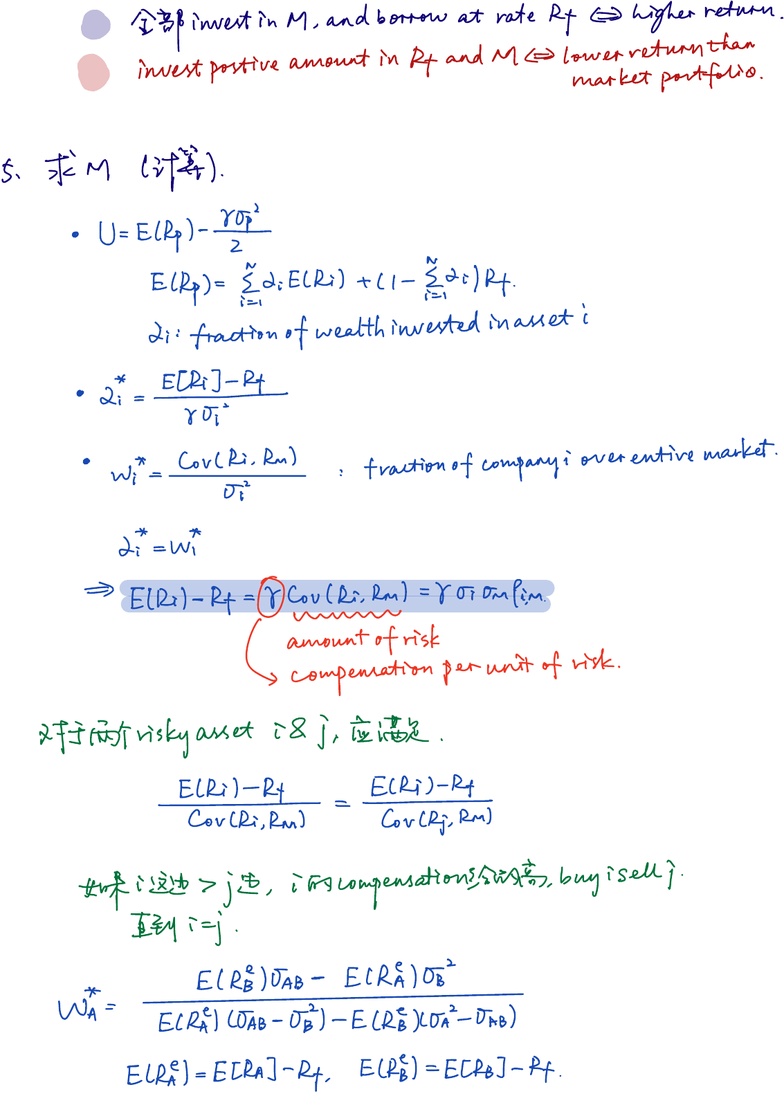 全部 invest in M, and borrow at rate Rf ⇔ higher return.
invest postive amount in Rf and M ⇔ lower return than
market portfolio.
5、求M (计算).
• U = E(Rp) - γσp²/2
E(Rp) = Σ_{i=1}^{N} αi E(Ri) + (1 - Σ_{i=1}^{N} αi) Rf.
αi : fraction of wealth invested in asset i
• αi* = (E[Ri] - Rf) / (γσi²)
• wi* = Cov(Ri, Rm) / σi² : fraction of company i over entire market.
αi* = wi*
⇒ E(Ri) - Rf = γ Cov(Ri, Rm) = γ σi σm ρi,m.
amount of risk
compensation per unit of risk.
对于两个risky asset i & j, 应满足.
(E(Ri) - Rf) / Cov(Ri, Rm) = (E(Ri) - Rf) / Cov(Rj, Rm)
如果 i 这边 > j 边, i 的compensation给的高, buy i sell j.
直到 i = j.
WA* = (E(RB^e)σAB - E(RA^e)σB²) / (E(RA^e)(σAB - σB²) - E(RB^e)(σA² - σAB))
E(RA^e) = E[RA] - Rf, E(RB^e) = E[RB] - Rf.